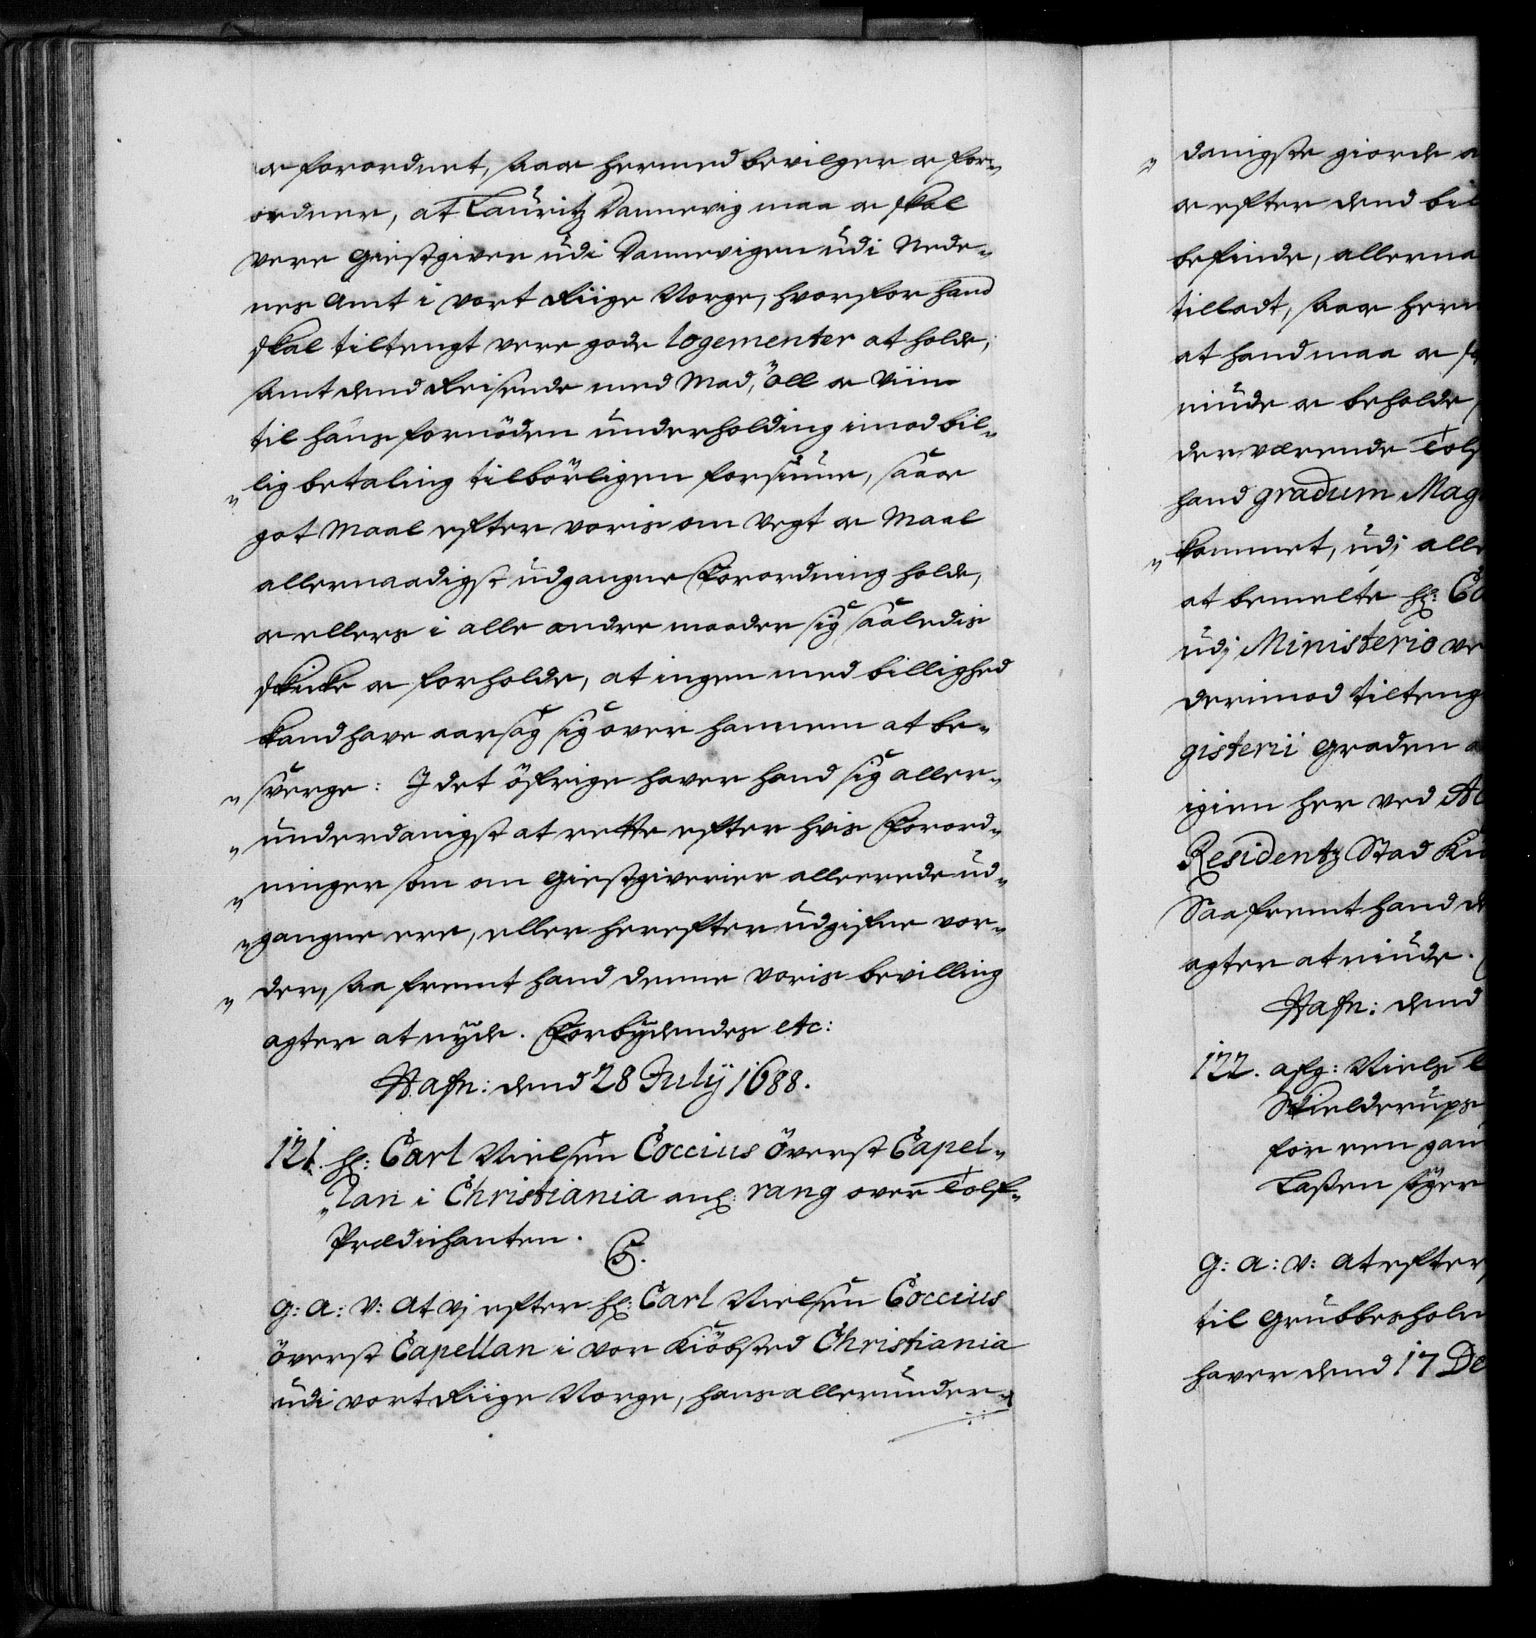 oc forordnet, saa oc hermed bevilger oc for„
ordner, at Lauritz Dannevig maa oc skal
vere Giestgiver udi Dannevigen udi Nede„
nes Amt i vort Riige Norge, hvorfor hand
skal tiltengt vere gode logementer at holde,
samt dend Reisende med Mad, öll oc Viin
til hans fornöden underholding imod bil„
„lig betaling tilbörligen forsiune, saa oc
got Maal efter voris om Vegt oc Maal
allernaadigst udgangne Forordning holde,
oc ellers i alle andre maader sig saaledis
skicke oc forholde, at ingen med billighed
kand have aarsag sig over hannem at be„
„sverge: I det öfrige haver hand sig aller„
„underdanigst at rette efter hvis Forord„
„ninger som om Giestgiverier allerede ud„
„gangne ere, eller herefter udgifne vor„
„der, saa fremt hand denne voris bevilling
agter at nyde. Forbydendes etc:
Hafn: dend 28 July 1688.
121. Hr: Carl Nielsen Coccius överst Capel„
„lan i Christiania anl: rang over Tolf„
Prædichanten.
C.
G: A: V: At vj efter Hr: Carl Nielsen Coccius
överst Capellan i vor Kiöbsted Christiania
udi vort Riige Norge, hans allerunder„
„danigste giorde
oc efter dend
befinde, allerna
tilladt, saa oc herm
at hand maa oc
niude oc beholde
der værende Tolf
hand gradum Mag
„kommet, udj alle
at bemelte Hr: Co
udj Ministerio ve
derimod tilteng
gisterii Graden
igien her ved
Residentz Stad
Saafremt hand
agter at niude.
Hafn: dend
122. afg: Niels
Skielderups
for een gan
Laßen
G: A: V: At efter
til Grubbesholm
haver dend 17 De